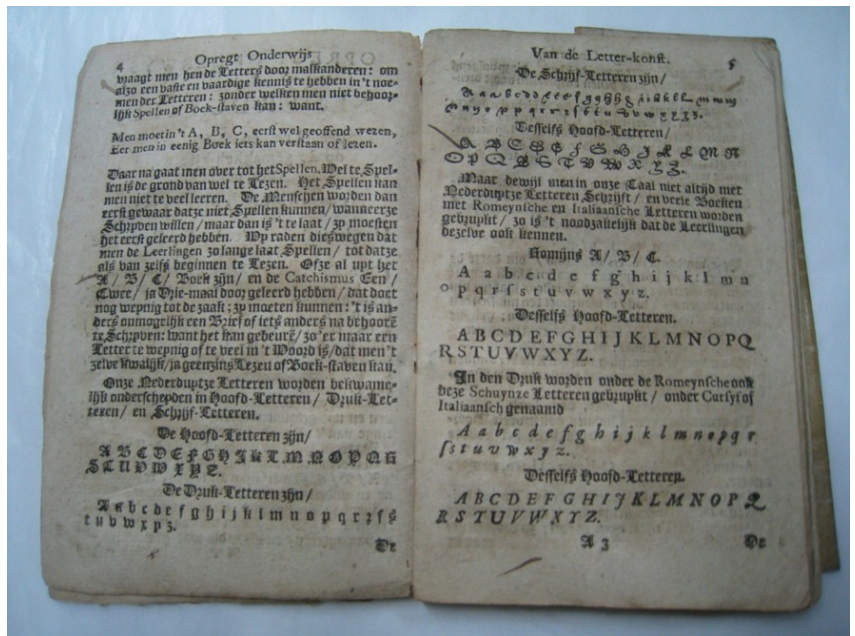 4 Opregt Onderwijs
vraagt men hen de Letters door malkanderen: om
alzo een vaste en vaardige kennis te hebben in 't noe-
men der Letteren: zonder welken men niet behoor-
lijk Spellen of Boek-staven kan: want.
Men moet in 't A, B, C, eerst wel geoffend wezen,
Eer men in eenig Boek iets kan verstaan of lezen.
Daar na gaat men over tot het Spellen. Wel te Spel-
len is de grond van wel te Lezen. Het Spellen kan
men niet te veel leeren. De Menschen worden dan
eerst gewaar datze niet Spellen kunnen / wanneerze
Schryven willen / maar dan is 't te laat / zy moesten
het eerst geleerd hebben. Wy raden dieswegen dat
men de Leerlingen zo lange laat Spellen / tot datze
als van zelfs beginnen te Lezen. Ofze al uyt het
A / B / C / Boek zijn / en de Catechismus Een /
Twee / ja Drie-maal door geleerd hebben / dat doet
nog weynig tot de zaak; zy moeten kunnen: 't is an-
ders onmogelijk een Brief of iets anders na behoorē
te Schryven: want het kan gebeurē / zo 'er maar een
Letter te weynig of te veel in 't Woord is / dat men 't
zelve kwalijk / ja geenzins Lezen of Boek-staven kan.
Onze Nederduytze Letteren worden bekwame-
lijk onderscheyden in Hoofd-Letteren / Druk-Let-
teren / en Schrijf-Letteren.
De Hoofd-Letteren zijn /
A B C D E F G H I K L M N O P Q R
S T U V W X Y Z.
De Druk-Letteren zijn /
A a b c d e f g h i j k l m n o p q r z ſ s
t u v w x y z.
De
Van de Letter-konſt. 5
De Schrijf-Letteren zijn /
Desselfs Hoofd-Letteren /
Maar dewijl men in onze Taal niet altijd met
Nederduytze Letteren Schrijft / en veele Boeken
met Romeynſche en Italiaanſche Letteren worden
gebruykt / zo is 't noodzakelijk dat de Leerlingen
dezelve ook kennen.
Romijns A / B / C.
A a b c d e f g h i j k l m n
o p q r ſ s t u v w x y z.
Desselfs Hoofd-Letteren.
A B C D E F G H I J K L M N O P Q
R S T U V W X Y Z.
In den Druk worden onder de Romeynſche ook
deze Schuynze Letteren gebruykt / onder Curſyf of
Italiaanſch genaamd
A a b c d e f g h i j k l m n o p q r
ſ s t u v w x y z.
Desselfs Hoofd-Letteren.
A B C D E F G H I J K L M N O P Q
R S T U V W X Y Z.
A 3 De